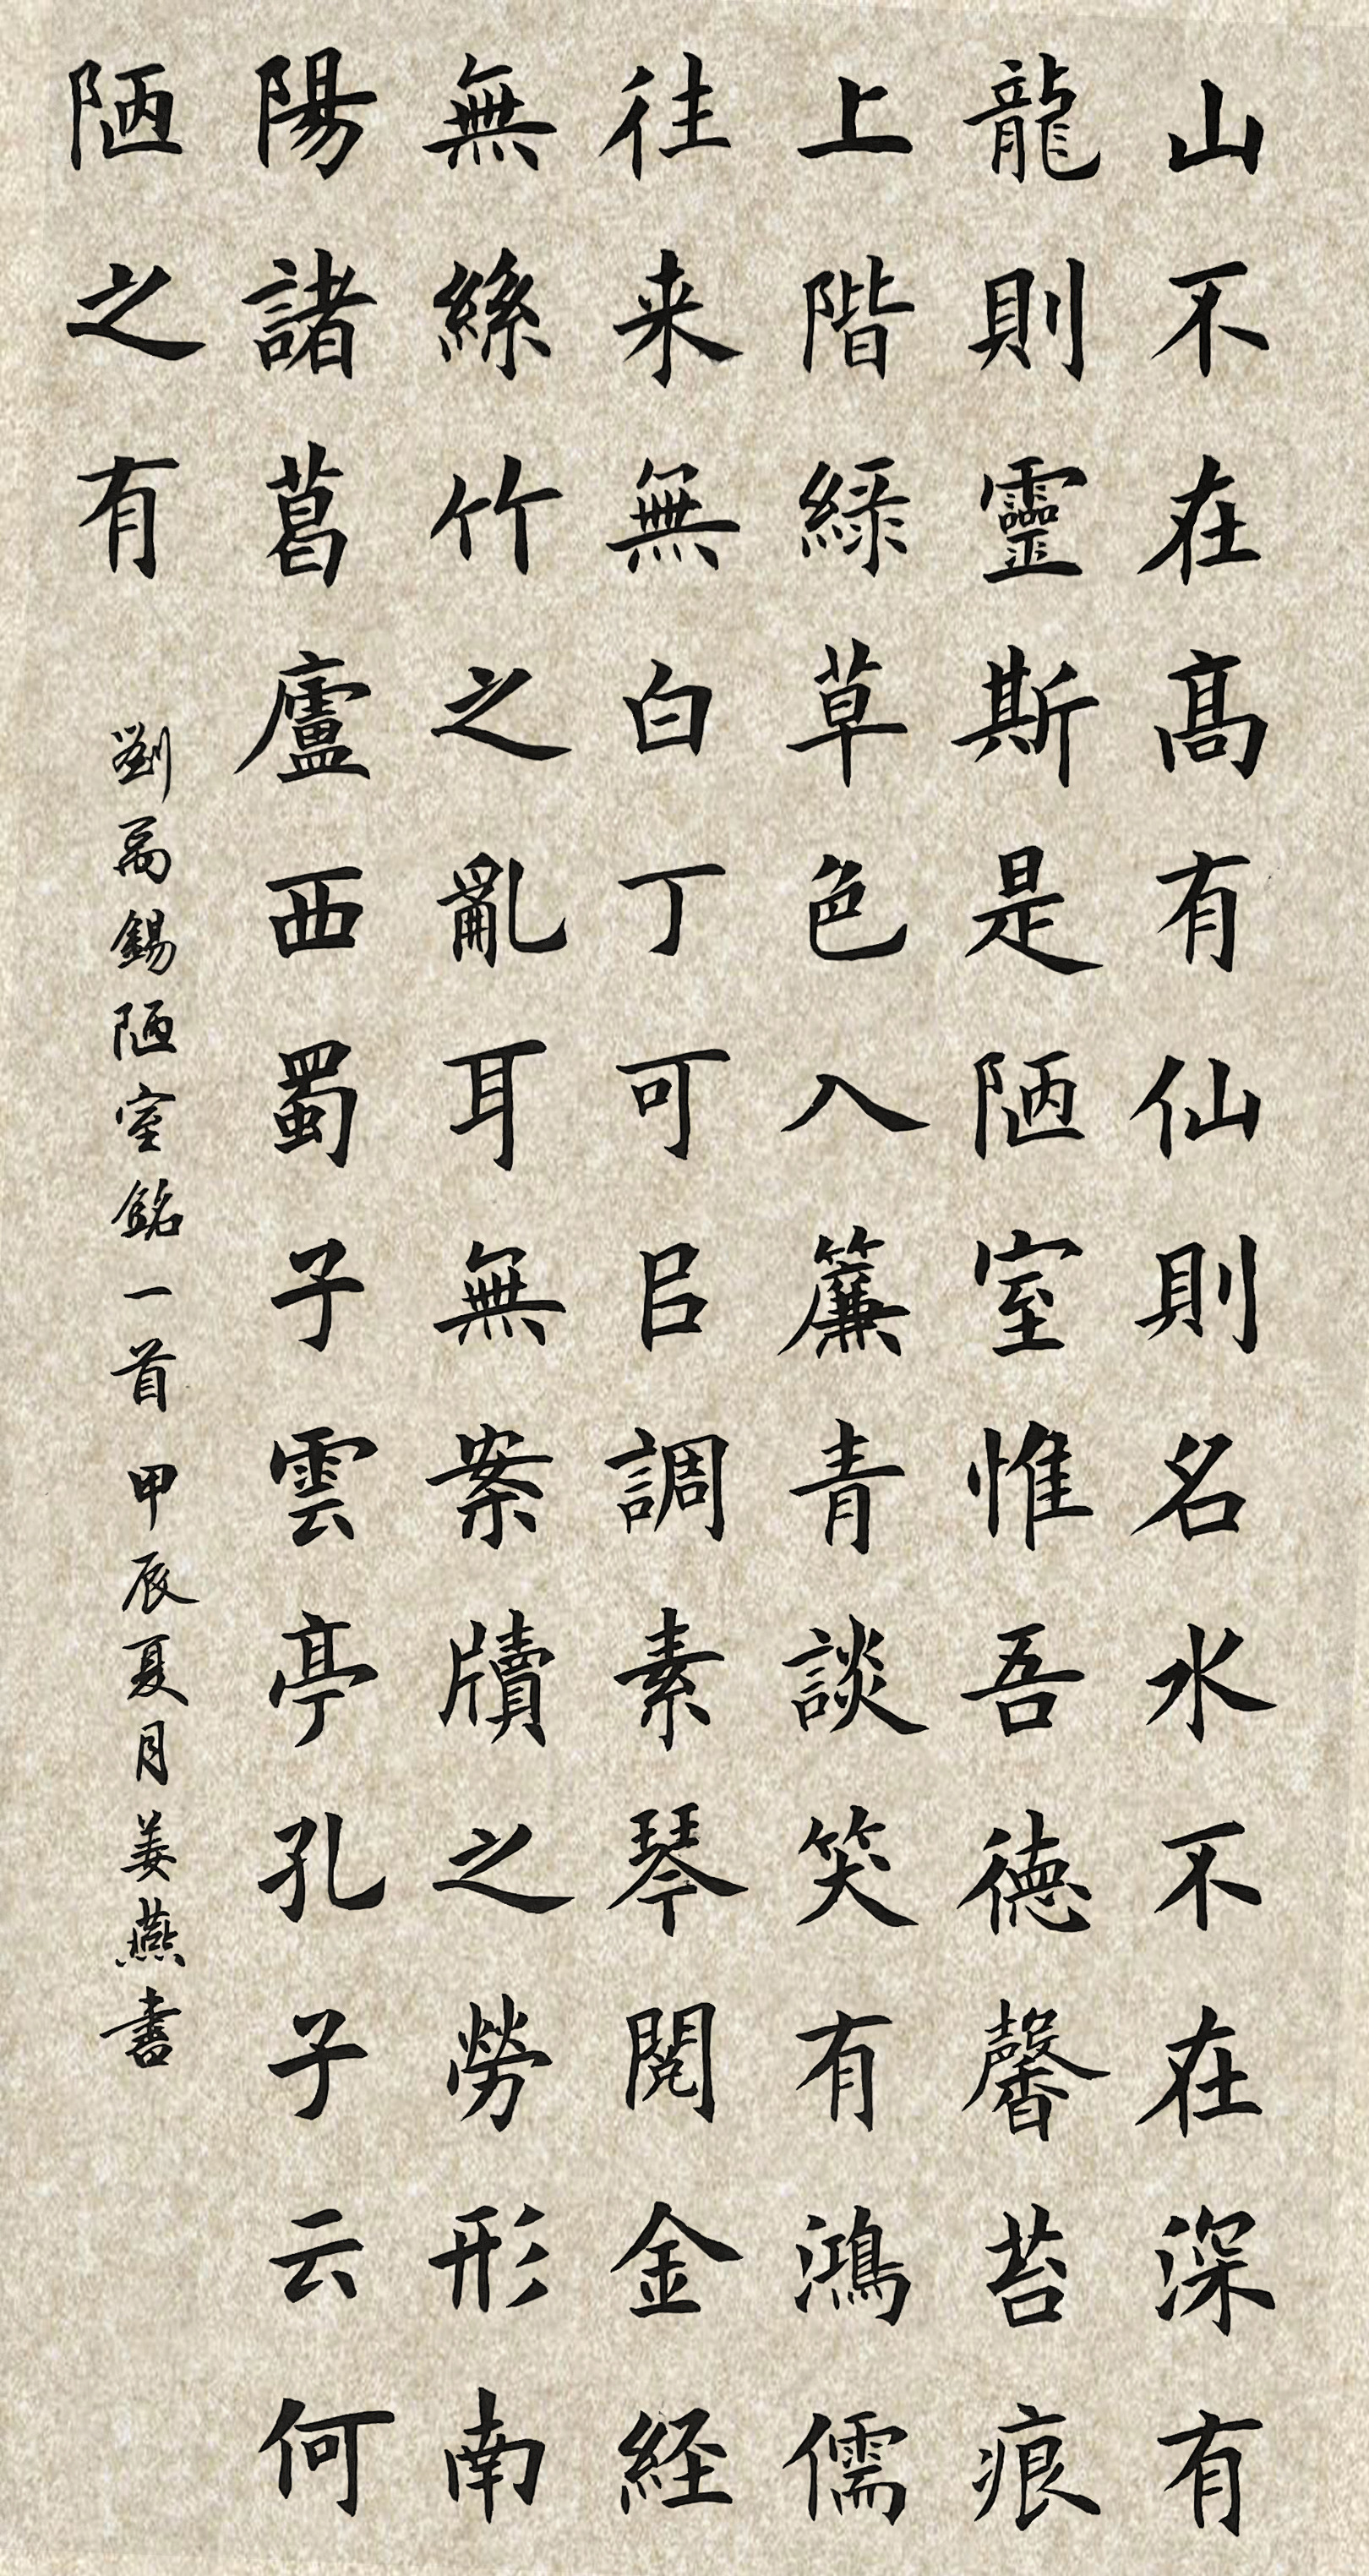 山不在高有仙則名水不在深有
龍則靈斯是陋室惟吾德馨苔痕
上階緑草色入簾青談笑有鴻儒
往来無白丁可㠯調素琴閱金経
無絲竹之亂耳無案牘之勞形南
陽諸葛廬西蜀子雲亭孔子云何
陋之有
劉禹錫陋室銘一首甲辰夏月姜燕書